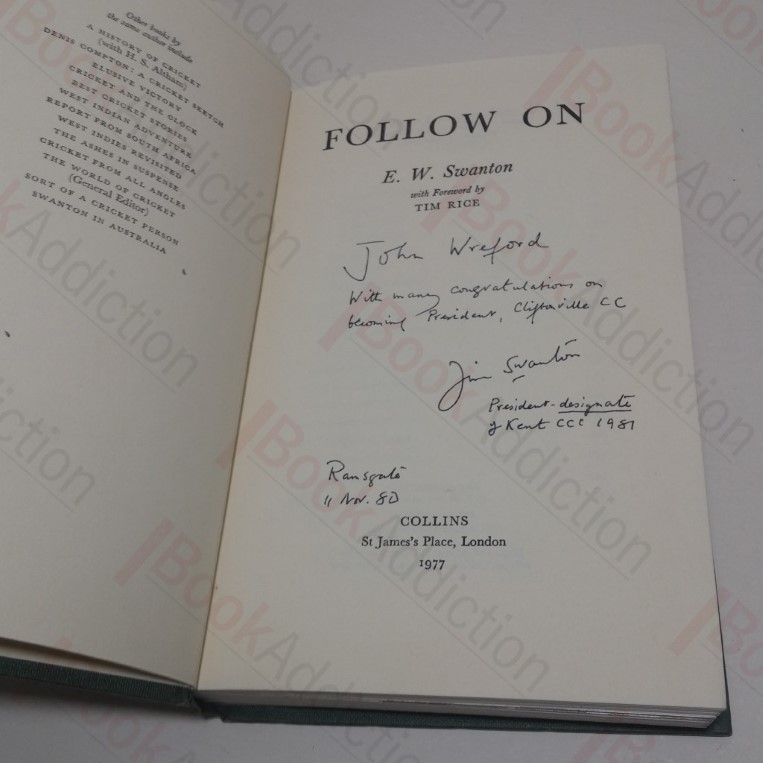 Other books by
the same author include
A HISTORY OF CRICKET
(with H. S. Altham)
DENIS COMPTON: A CRICKET SKETCH
ELUSIVE VICTORY
CRICKET AND THE CLOCK
BEST CRICKET STORIES
WEST INDIAN ADVENTURE
REPORT FROM SOUTH AFRICA
WEST INDIES REVISITED
THE ASHES IN SUSPENSE
CRICKET FROM ALL ANGLES
THE WORLD OF CRICKET
(General Editor)
SORT OF A CRICKET PERSON
SWANTON IN AUSTRALIA
FOLLOW ON
E. W. Swanton
with Foreword by
TIM RICE
John Wreford
With many congratulations on
becoming President, Cliftonville CC
Jim Swanton
President-designate
of Kent CCC 1981
Ramsgate
11 Nov. 80
COLLINS
St James's Place, London
1977
BookAddiction